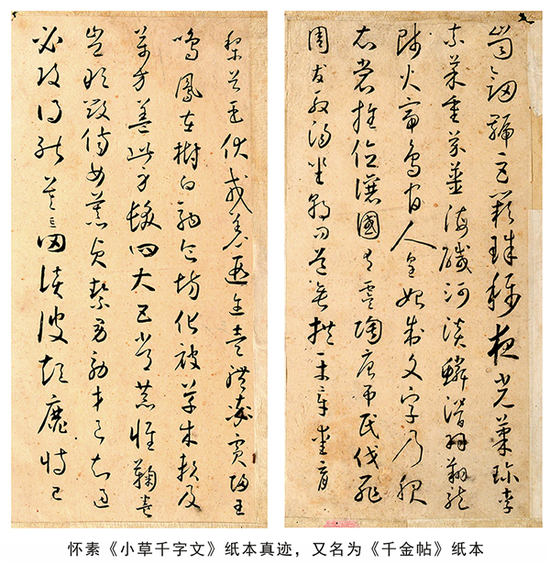 崗劒號巨闕珠稱夜光菓珍李
柰菜重芥薑海鹹河淡鱗潛羽翔龍
師火帝鳥官人皇始制文字乃服
衣裳推位讓國有虞陶唐弔民伐罪
周發殷湯坐朝問道垂拱平章愛育
黎首臣伏戎羌遐邇壹體率賓歸王
鳴鳳在樹白駒食場化被草木賴及
萬方蓋此身髮四大五常恭惟鞠養
豈敢毀傷女慕貞絜男效才良知過
必改得能莫忘罔談彼短靡恃己
怀素《小草千字文》纸本真迹，又名为《千金帖》纸本